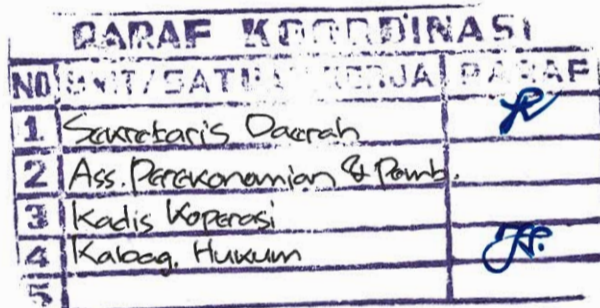 PARAF KOORDINASI
NO UNIT/SATUAN KERJA PARAF
1 Sekretaris Daerah
2 Ass. Perekonomian & Pemb.
3 Kadis Koperasi
4 Kabag. Hukum
5